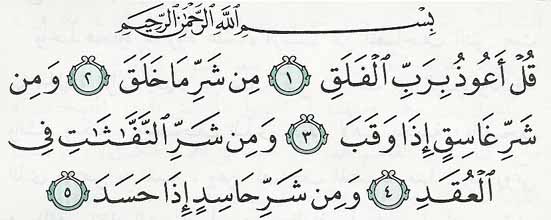 بِسْمِ اللَّهِ الرَّحْمَٰنِ الرَّحِيمِ
قُلْ أَعُوذُ بِرَبِّ الْفَلَقِ ١ مِن شَرِّ مَا خَلَقَ ٢ وَمِن
شَرِّ غَاسِقٍ إِذَا وَقَبَ ٣ وَمِن شَرِّ النَّفَّٰثَٰتِ فِى
الْعُقَدِ ٤ وَمِن شَرِّ حَاسِدٍ إِذَا حَسَدَ ٥